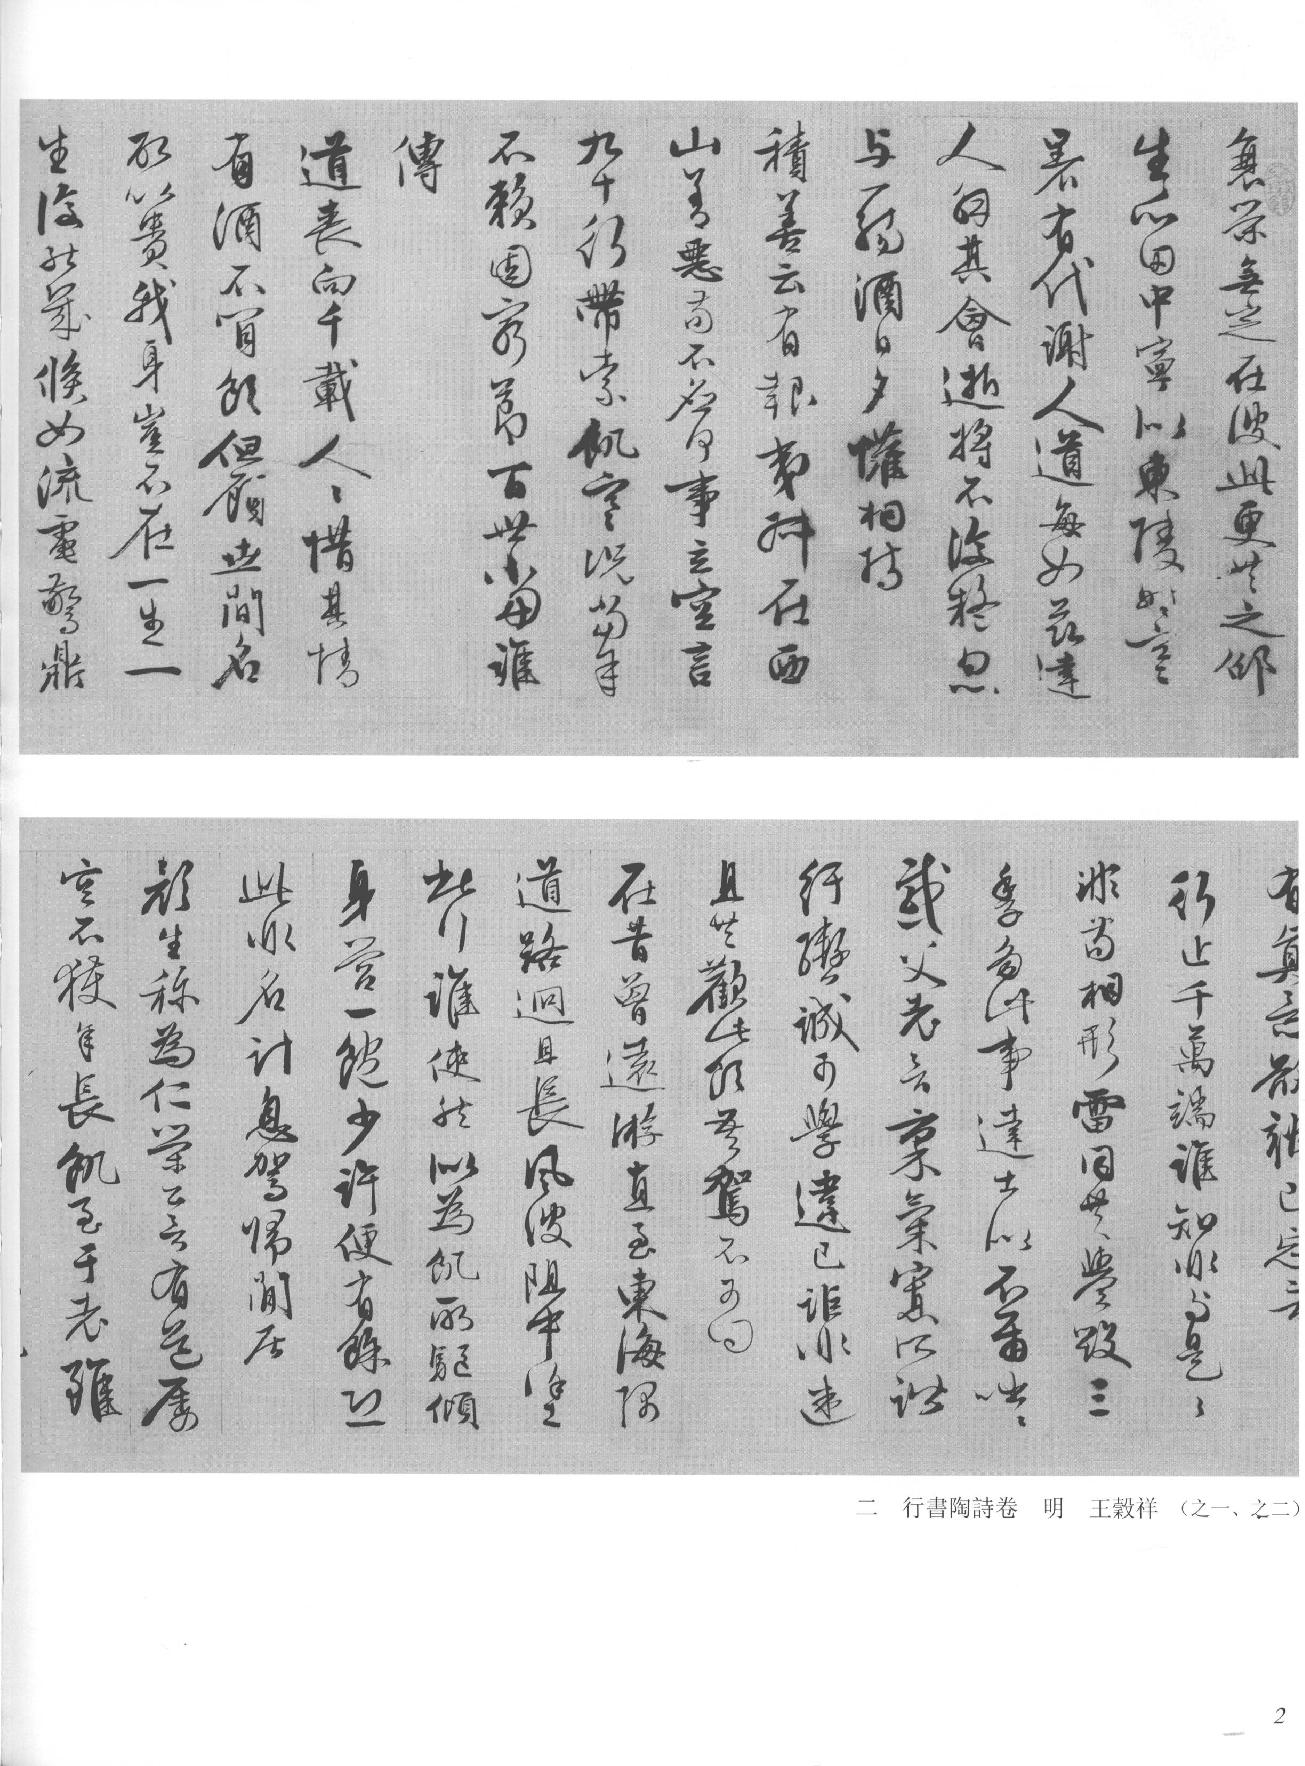 衰榮無定在彼此更共之邵
生瓜田中寧似東陵時寒
暑有代謝人道每如茲達
人解其會逝將不復疑忽
与一觴酒日夕懽相持
積善云有報夷叔在西
山善惡苟不應何事立空言
九十行帶索飢寒況當年
不賴固窮節百世當誰
傳
道喪向千載人〻惜其情
有酒不肯飲但顧世間名
所以貴我身豈不在一生一
生復能幾倏如流電驚鼎
有真意欲辨已忘言
行止千萬端誰知非與是〻
非苟相形雷同共譽毀三
季多此事達士似不爾咄〻
感父老言稟氣寡所諧
紆轡誠可學違己詎非迷
且共歡此飲吾駕不可回
在昔曾遠游直至東海隅
道路迥且長風波阻中塗
此行誰使然似為飢所驅傾
身營一飽少許便有餘恐
此非名計息駕歸閒居
顏生稱為仁榮公言有道屢
空不獲年長飢至于老雖
二　行書陶詩卷　明　王穀祥　（之一、之二）
2